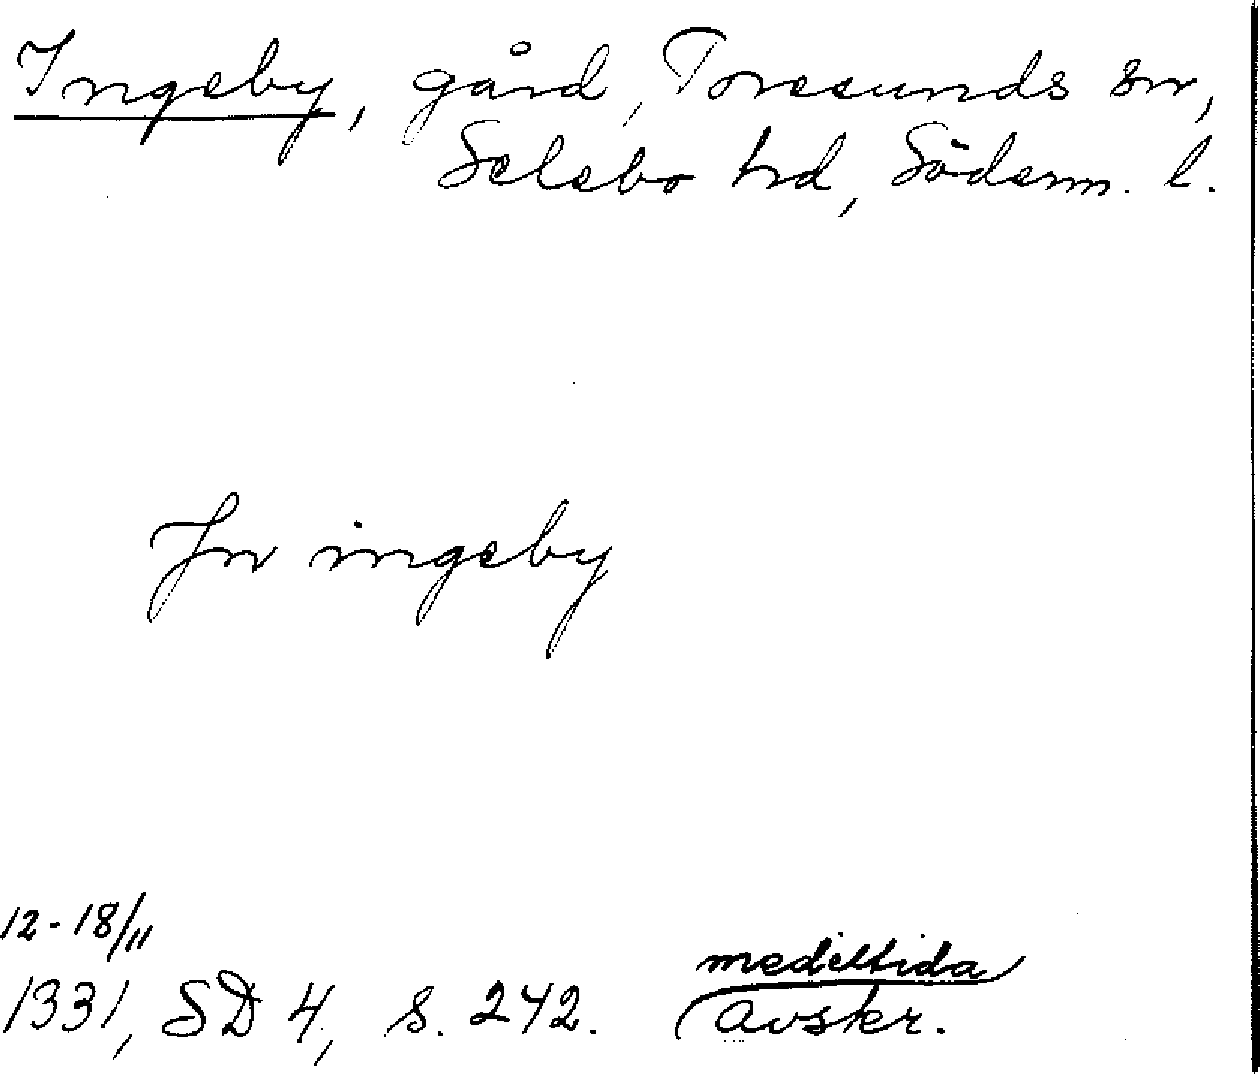 Ingeby, gård, Toresunds sn,
Selebo hd, Söderm. l.
Jn ingeby
12-18/11
medeltida
1331, SD 4, s. 242. Avskr.